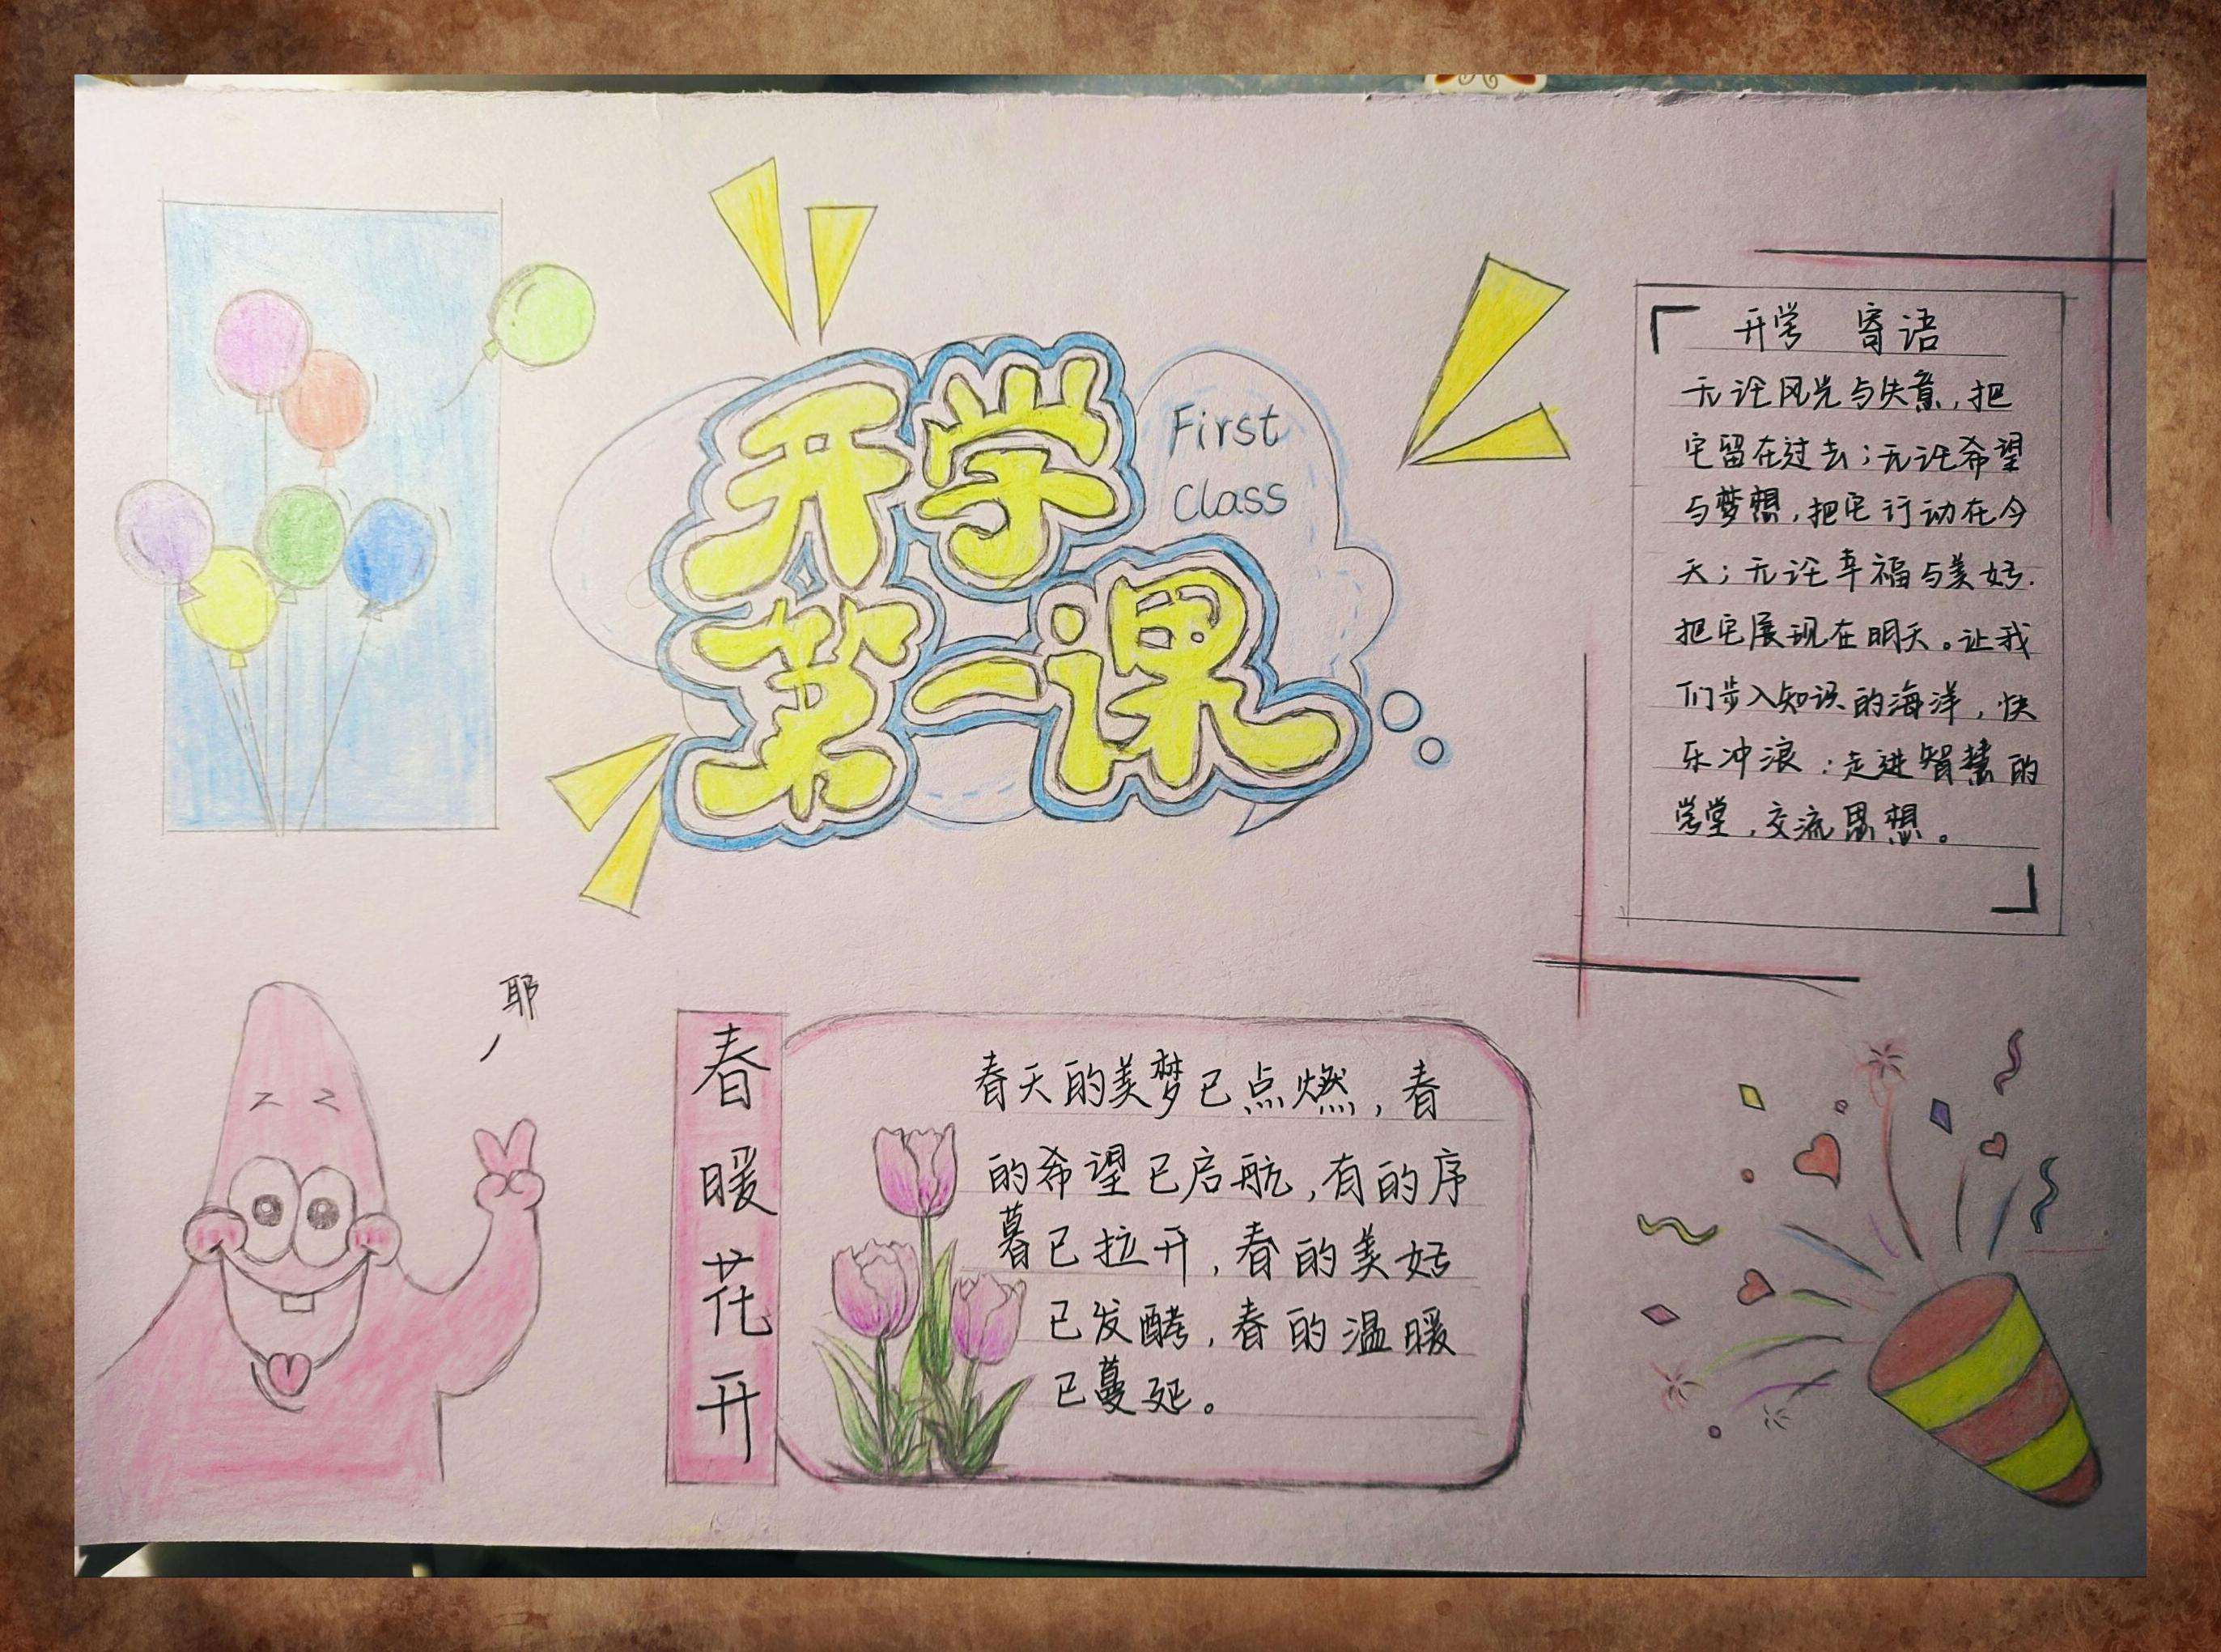 开学
第一课
First
Class
开学 寄语
无论风光与失意，把
它留在过去；无论希望
与梦想，把它行动在今
天；无论幸福与美好.
把它展现在明天。让我
们步入知识的海洋，快
乐冲浪；走进智慧的
学堂，交流思想。
耶
春暖花开
春天的美梦已点燃，春
的希望已启航，有的序
暮已拉开，春的美好
已发酵，春的温暖
已蔓延。